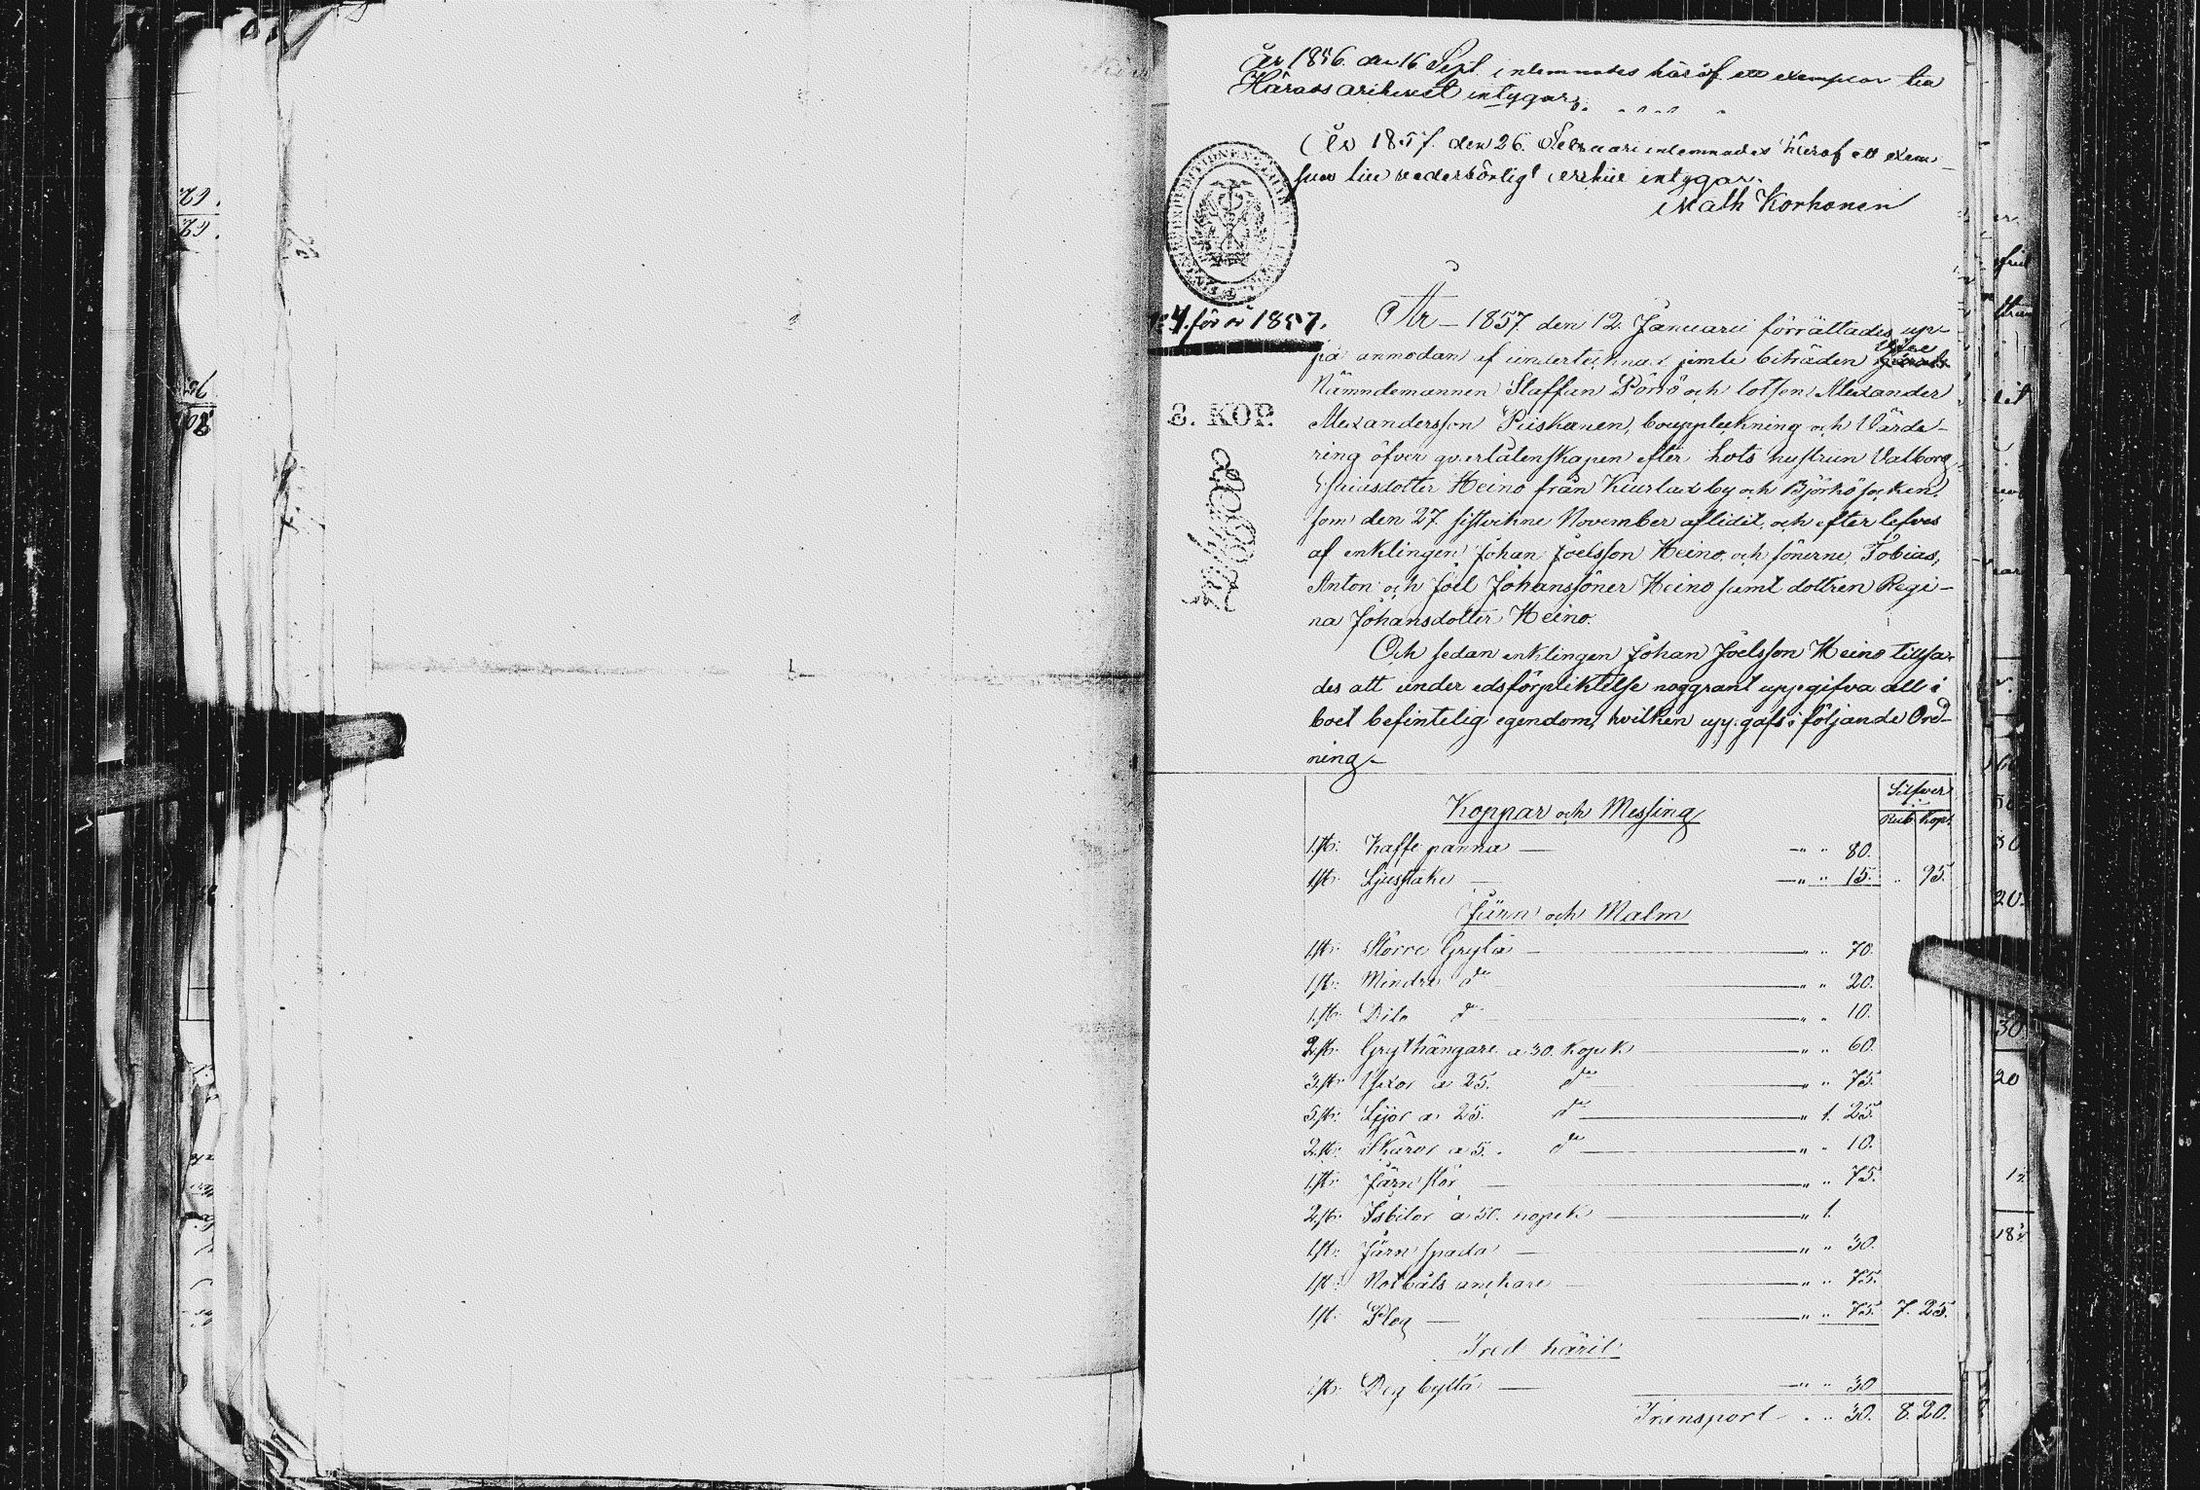 År 1856. den 16 Sept. inlemnades häraf ett exemplar till
Härads arkivet intygar.
År 1857. den 26. Februari inlemnades hieraf ett exem-
plar till vederbörligt arkiv intygar.
Math Korhonen
No 4. för år 1857.
År 1857 den 12. Januarii förrättades, up-
på anmodan af undertecknad jemte biträden
Nämndemannen Staffan Pörrö och lotsen Alexander
Alexandersson Piiskanen, bouppteckning och Värde-
ring öfver qvarlåtenskapen efter Lots hustrun Valborg
Heino från Kiurlax by och Björkö socken,
som den 27. sistvikne November aflidit, och efterlefves
af enklingen Johan Joelsson Heino, och sönerne Tobias,
Anton och Joel Johanssöner Heino samt dottren Regi-
na Johansdotter Heino.
3. KOP.
Och sedan enklingen Johan Joelsson Heino tillsa-
des att under edsförpliktelse noggrant uppgifva all i
boet befintelig egendom, hvilken uppgafs i följande Ord-
ning.
Silfver
Rub. Kop.
Koppar och Messing
1. st. Kaffe panna — " " 80.
1 st. Ljusstake — " " 15. " 95.
Järn och Malm
1 st. Större Gryta — " " 70.
1 st. Mindre do — " " 20.
1. st. Dito do — " " 10.
2. st. Grythängare a 30. Kopek — " " 60.
3. st. Yxor a 25. do — " " 75.
5. st. Lijor a 25. do — " 1. 25.
2. st. Skäror a 5. do — " " 10.
1. st. Järn stör — " " 75.
2. st. Isbilor a 50. kopek — " 1.
1 st. Järn spada — " " 30.
1 st. Notbåts anckare — " " 75.
1 st. Plog — " " 75. 7. 25.
Träd käril
1 st. Deg bytta — " " 30
Transport " " 30. 8. 20.